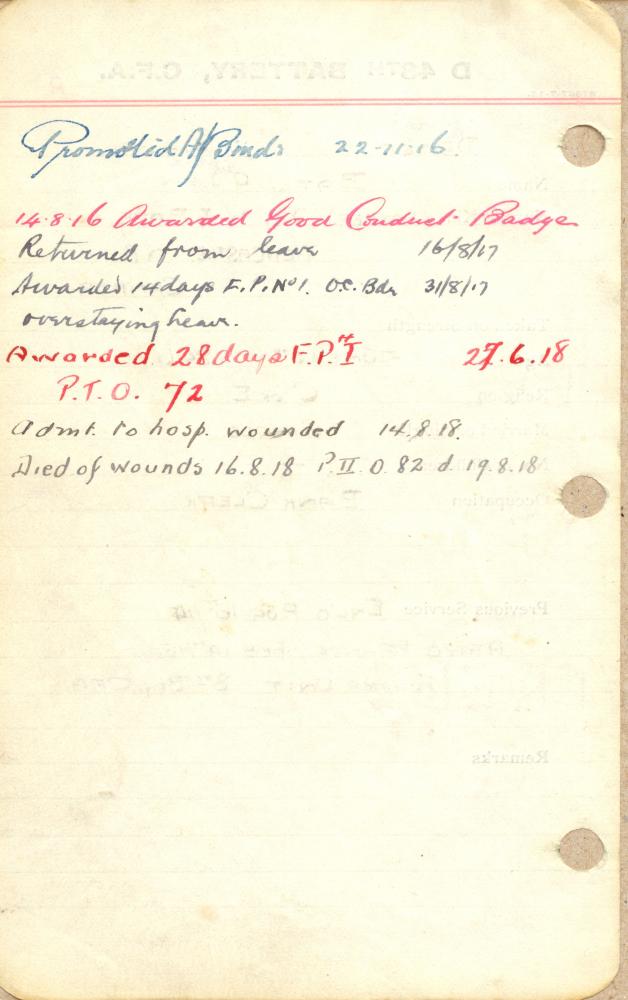 Promoted A/Bmdr 22-11-16
14.8.16 Awarded Good Conduct Badge
Returned from leave 16/8/17
Awarded 14days F.P. No 1. O.C. Bde 31/8/17
overstaying leave.
Awarded 28days F.P. I 27.6.18
P.T.O. 72
Admt. to hosp. wounded 14.8.18.
Died of wounds 16.8.18 P.II O. 82 d. 19.8.18